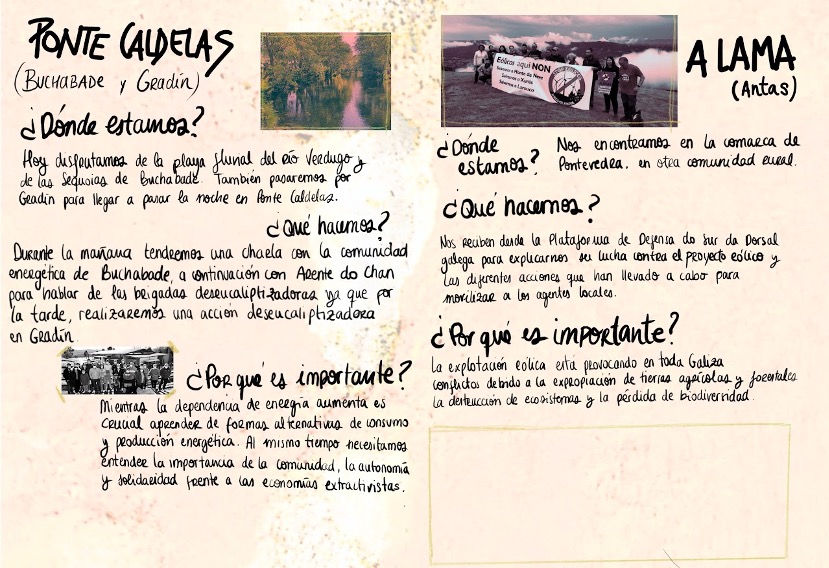 PONTE CALDELAS
(BUCHABADE y GRADÍN)
¿Dónde estamos?
Hoy disfrutamos de la playa fluvial del río Verdugo y
de las Sequoias de Buchabade. También pasaremos por
Gradín para llegar a pasar la noche en Ponte Caldelas.
¿Qué hacemos?
Durante la mañana tendremos una charla con la comunidad
energética de Buchabade, a continuación con Axente do Chan
para hablar de las brigadas deseucaliptizadoras ya que por
la tarde, realizaremos una acción deseucaliptizadora
en Gradín.
¿Por qué es importante?
Mientras la dependencia de energía aumenta es
crucial aprender de formas alternativas de consumo
y producción energética. Al mismo tiempo necesitamos
entender la importancia de la comunidad, la autonomía
y solidaridad frente a las economías extractivistas.
Eólicos aquí NON
A LAMA
(Antas)
¿Dónde
estamos?
Nos encontramos en la comarca de
Pontevedra, en otra comunidad rural.
¿Qué hacemos?
Nos reciben desde la Plataforma de Defensa do Sur da Dorsal
galega para explicarnos su lucha contra el proyecto eólico y
las diferentes acciones que han llevado a cabo para
movilizar a los agentes locales.
¿Por qué es importante?
La explotación eólica está provocando en toda Galiza
conflictos debido a la expropiación de tierras agrícolas y forestales
la destrucción de ecosistemas y la pérdida de biodiversidad.